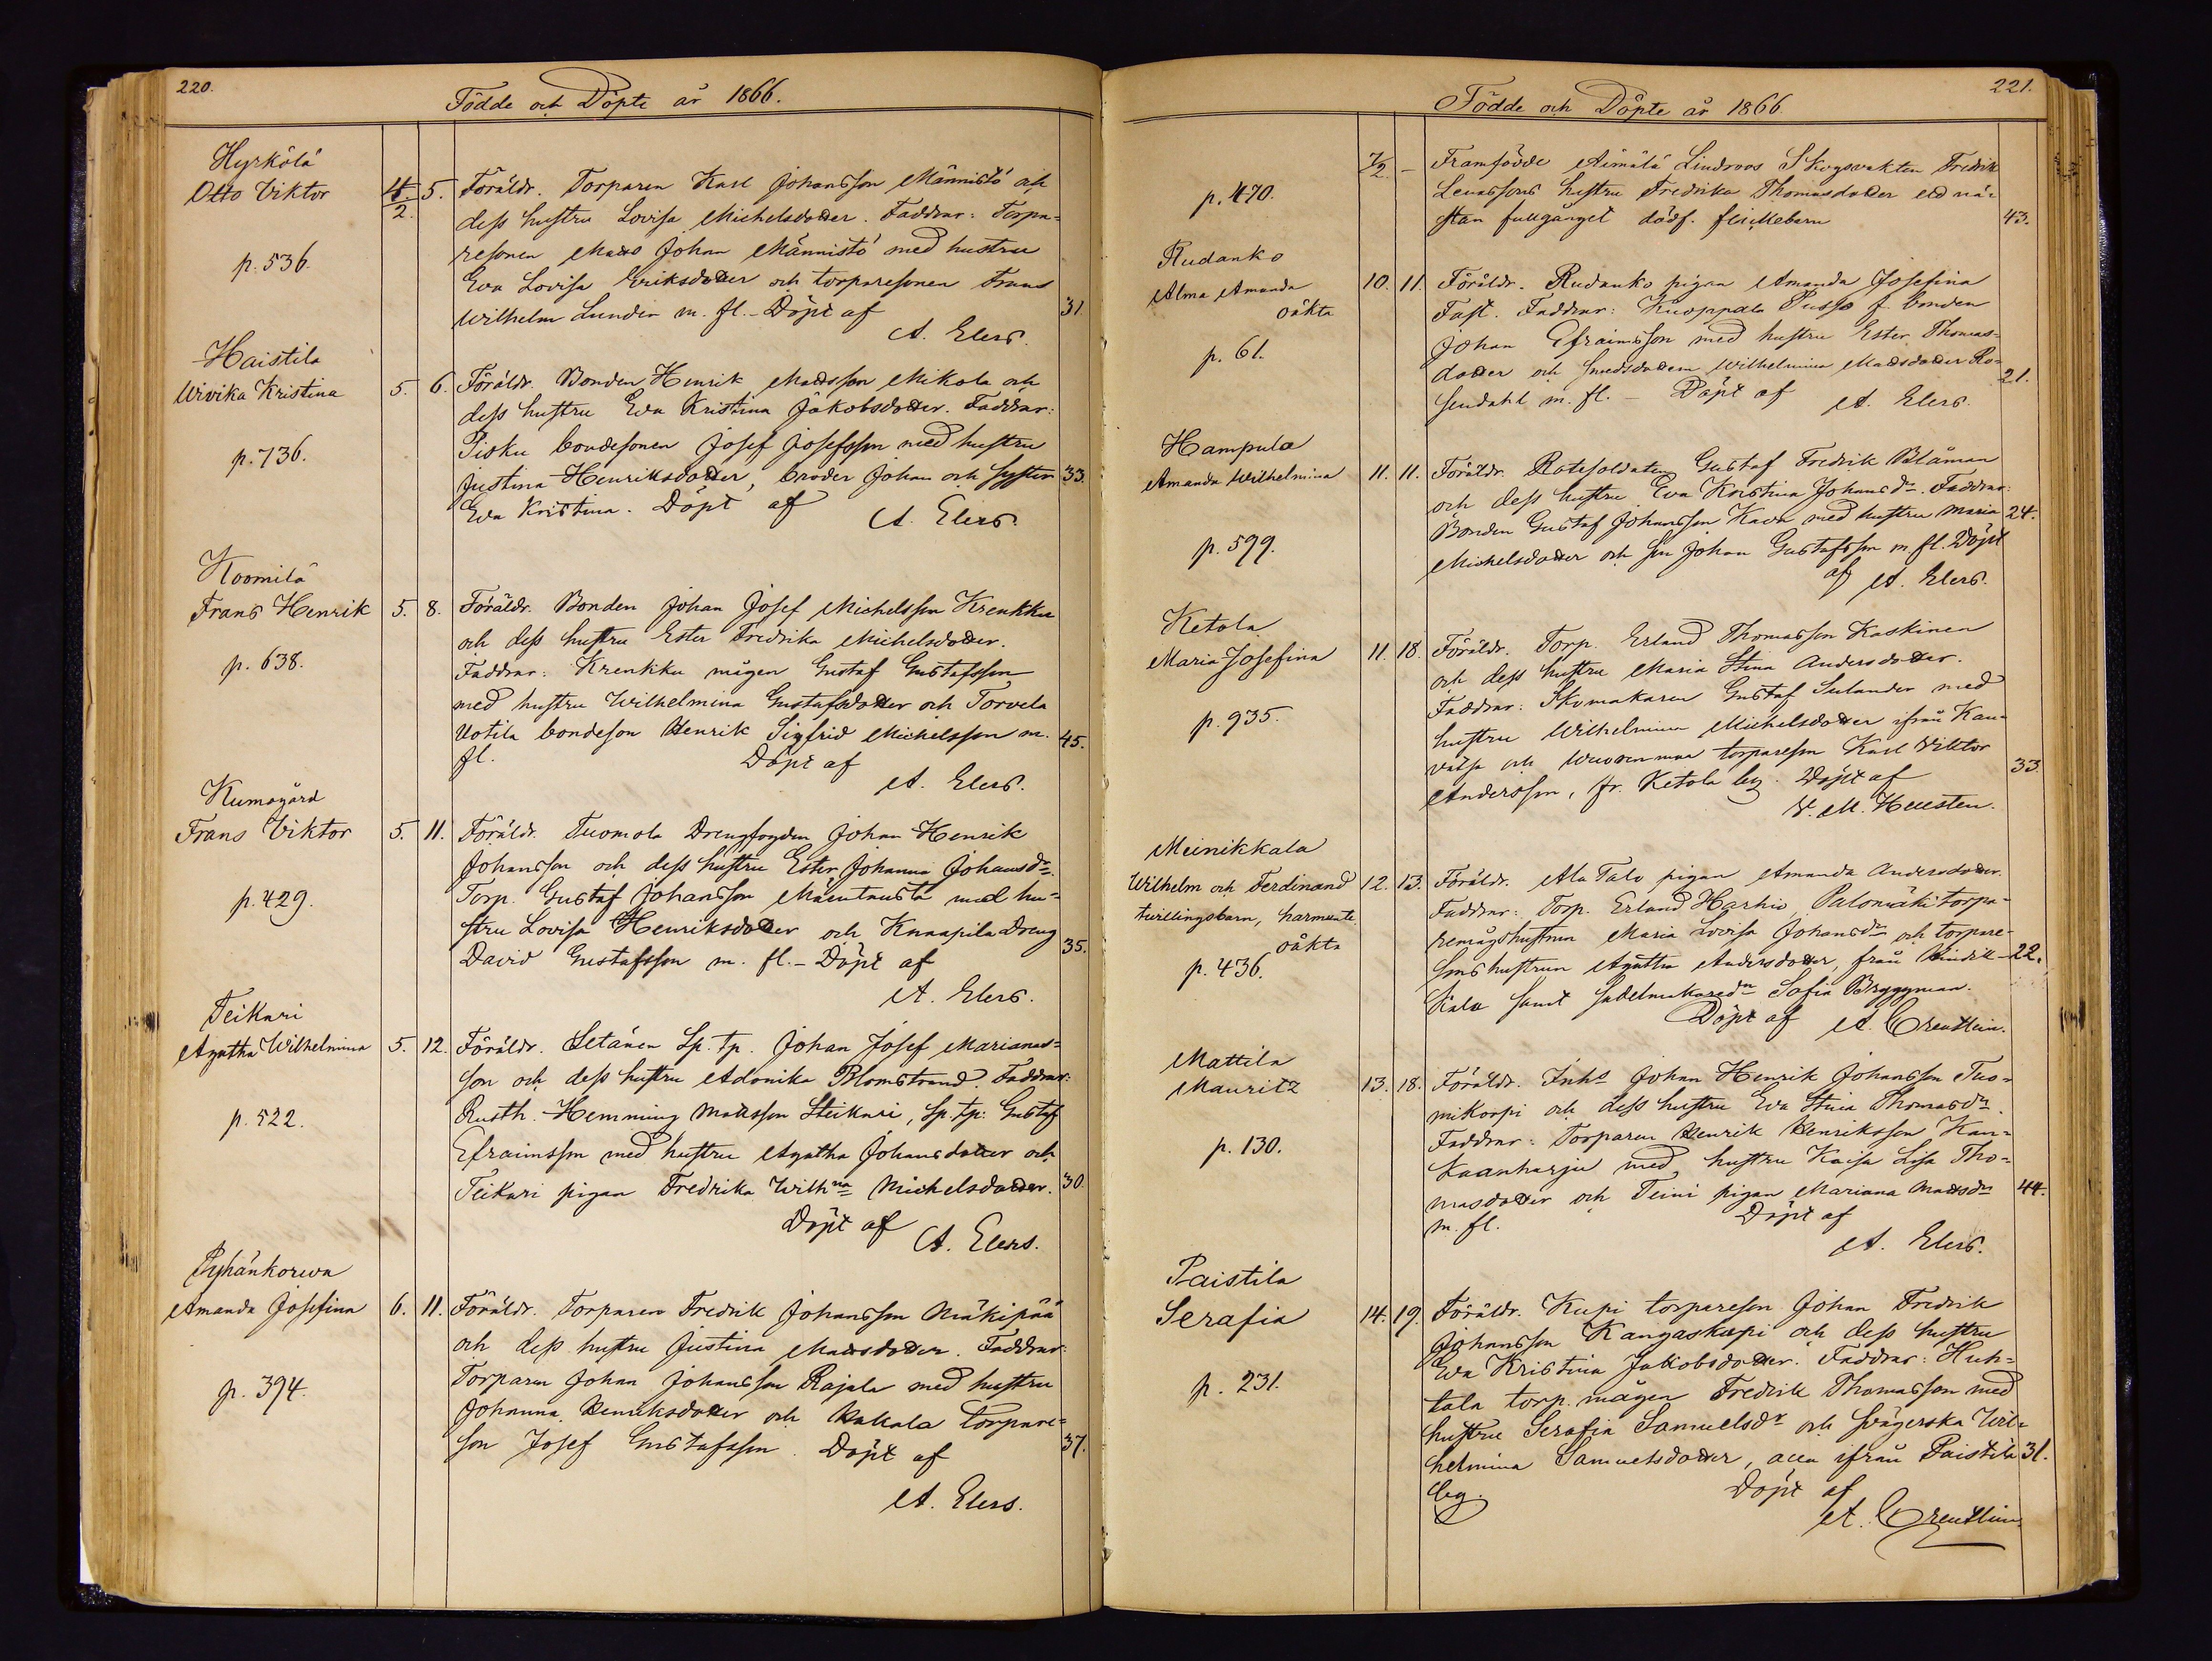 220.
Födde och Döpte år 1866.
Hyrkölä
Otto Viktor
p. 536.
4/2. 5. Föräldr. Torparen Karl Johansson Männistö och
dess hustru Lovisa Michelsdotter. Faddrar: Torpa-
resonen Mats Johan Männistö med hustru
Eva Lovisa Eriksdotter och torparesonen Frans
Wilhelm Lunden m. fl. – Döpt af 31.
A. Elers.
Haistila
Wivika Kristina
p. 736.
5. 6. Föräldr. Bonden Henrik Matsson Mikola och
dess hustru Eva Kristina Jakobsdotter. Faddrar:
Pisku bondesonen Josef Josefsson med hustru
Justina Henriksdotter, broder Johan och syster 33.
Eva Kristina. Döpt af
A. Elers.
Koomilä
Frans Henrik
p. 638.
5. 8. Föräldr. Bonden Johan Josef Michelsson Krenkku
och dess hustru Ester Fredrika Michelsdotter.
Faddrar: Krenkku mågen Gustaf Gustafsson
med hustru Wilhelmina Gustafsdotter och Torvela
Uotila bondeson Henrik Sigfrid Michelsson m. 45.
fl. Döpt af
A. Elers.
Kumogård
Frans Viktor
p. 429.
5. 11. Föräldr. Tuomola Drengfogden Johan Henrik
Johansson och dess hustru Ester Johanna Johansdr.
Torp. Gustaf Johansson Mäentausta med hu-
stru Lovisa Henriksdotter och Knaapila Dreng
David Gustafsson m. fl. – Döpt af 35.
A. Elers.
Teikari
Agatha Wilhelmina
p. 522.
5. 12. Föräldr. Setänen Sp. tp. Johan Josef Marianas-
son och dess hustru Adonika Blomstrand. Faddrar:
Rusth. Hemming Matsson Steikari, Sp. tp: Gustaf
Efraimsson med hustru Agatha Johansdotter och
Teikari pigan Fredrika Wilhna Michelsdotter. 30.
Döpt af
A. Elers.
Pyhänkorwa
Amanda Josefina
p. 394.
6. 11. Föräldr. Torparen Fredrik Johansson Mäkipää
och dess hustru Justina Matsdotter. Faddrar:
Torparen Johan Johansson Rajala med hustru
Johanna Henriksdotter och Kakala torpare-
son Josef Gustafsson. Döpt af 37.
A. Elers.
221.
Födde och Döpte år 1866.
p. 470.
7/2. – Framfödde Äimälä Lindroos Skogsvakten Fredrik
Lenassons hustru Fredrika Thomasdotter ett nä-
stan fullgånget dödf. flickebarn 43.
Rudanko
Alma Amanda
oäkta
p. 61.
10. 11. Föräldr. Rudanko pigan Amanda Josefina
Fast. Faddrar: Knoppala Pusso f. bonden
Johan Efraimsson med hustru Ester Thomas-
dotter och smedsdottern Wilhelmina Matsdotter Ro-
sendahl m. fl. – Döpt af 21.
A. Elers.
Hampula
Amanda Wilhelmina
p. 599.
11. 11. Föräldr. Rotesoldaten Gustaf Fredrik Blåman
och dess hustru Eva Kristina Johansdr. Faddrar:
Bonden Gustaf Johansson Kava med hustru Maria 24.
Michelsdotter och son Johan Gustafsson m. fl. Döpt
af A. Elers.
Ketola
Maria Josefina
p. 935.
11. 18. Föräldr. Torp. Erland Thomasson Kaskinen
och dess hustru Maria Stina Andersdotter.
Faddrar: Skomakaren Gustaf Sulander med
hustru Wilhelmina Michelsdotter ifrån Kau-
vatsa och Wuorenmaa torpareson Karl Viktor
Andersson, fr. Ketola by. Döpt af 33.
V. M. Hellsten.
Meinikkala
Wilhelm och Ferdinand
tvillingsbarn, 
oäkta
p. 436.
12. 13. Föräldr. Ala Talo pigan Amanda Andersdotter.
Faddrar: Torp. Erland Harhio, Palomäki torpa-
remågshustrun Maria Lovisa Johansdr och torpare-
sonshustrun Agatha Andersdotter, från 22.
samt sadelmakaredn Sofia Bryggman.
Döpt af A. Orenstein.
Mattila
Mauritz
p. 130.
13. 18. Föräldr. Inhs Johan Henrik Johansson Tuo-
mikorpi och dess hustru Eva Stina Thomasdr.
Faddrar: Torparen Henrik Henriksson Kan-
kaanharju med hustru Kaisa Lisa Tho-
masdotter och Teini pigan Mariana Matsdr 44.
m. fl. Döpt af
A. Elers.
Paistila
Serafia
p. 231.
14. 19. Föräldr. Kupi torpareson Johan Fredrik
Johansson Kangaskupi och dess hustru
Eva Kristina Jakobsdotter. Faddrar: Huh-
tala torp. mågen Fredrik Thomasson med
hustru Serafia Samuelsdr och svägerska Wil-
helmina Samuelsdotter, alla ifrån Paistila 31.
by. Döpt af
A. Orenstein.